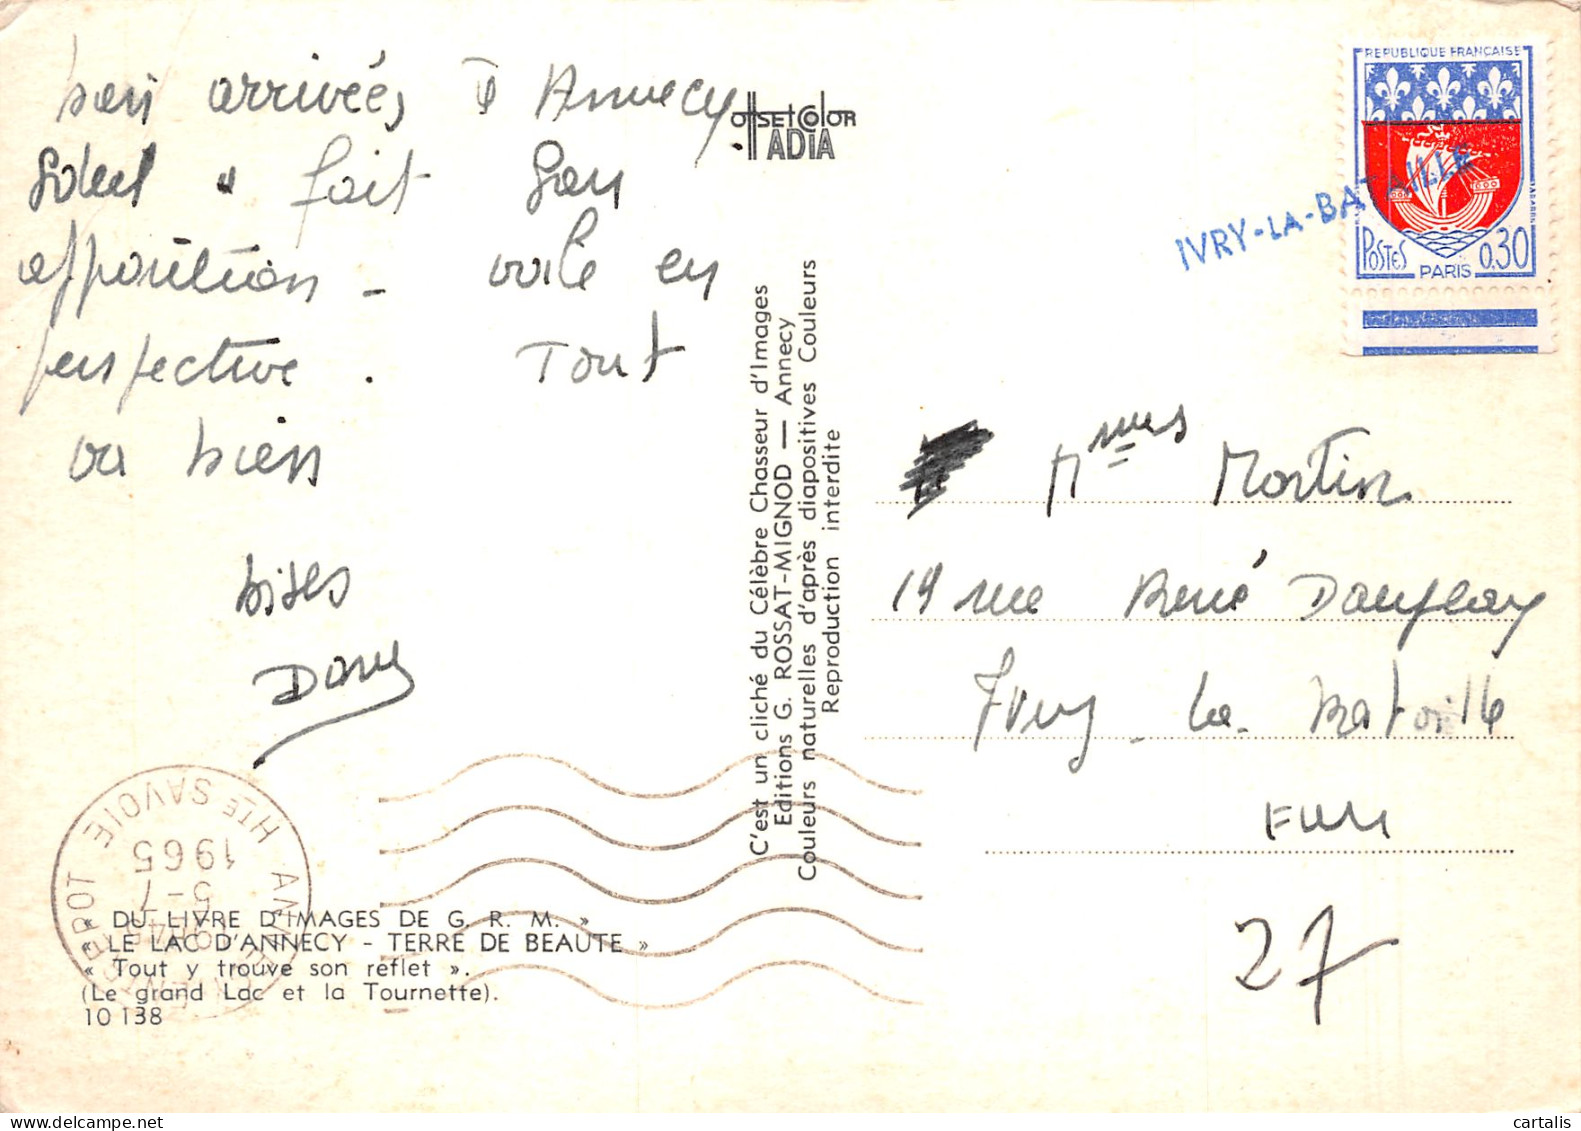 bon arrivées D'Annecy
Soleil a fait son
apparition - voile en
perspective. Tout
va bien
bises
Dany
OffSET COlOR
TADIA
C'est un cliché du Célèbre Chasseur d'Images
Editions G. ROSSAT-MIGNOD — Annecy
Couleurs naturelles d'après diapositives Couleurs
Reproduction interdite
REPUBLIQUE FRANÇAISE
POSTES
PARIS
0,30
IVRY-LA-BATAILLE
Mmes Martin
19 rue René Daufeay
Ivry-la-Bataille
Eure
27
ANNECY CENTRAL ENTREPOT
HTE SAVOIE
5-7
1965
« DU LIVRE D'IMAGES DE G. R. M. »
« LE LAC D'ANNECY - TERRE DE BEAUTE »
« Tout y trouve son reflet ».
(Le grand Lac et la Tournette).
10 138
cartalis